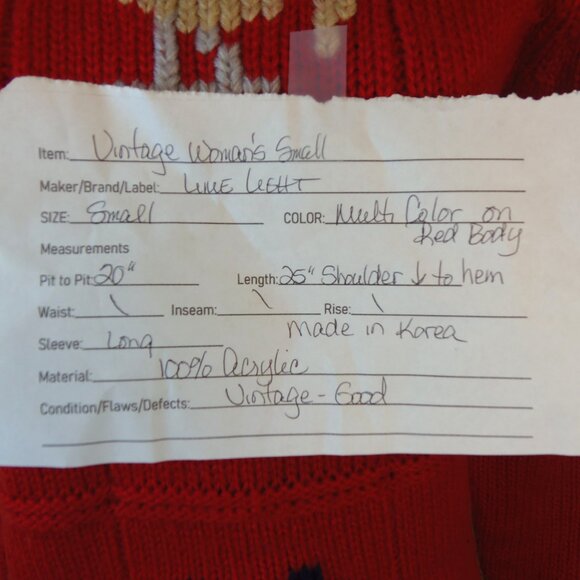 Item: Vintage Woman's Small
Maker/Brand/Label: LIME LIGHT
SIZE: Small COLOR: Multi Color on
Red Body
Measurements
Pit to Pit: 20" Length: 25" Shoulder ↓ to hem
Waist: \ Inseam: \ Rise: \
Made in Korea
Sleeve: Long
Material: 100% Acrylic
Condition/Flaws/Defects: Vintage - Good